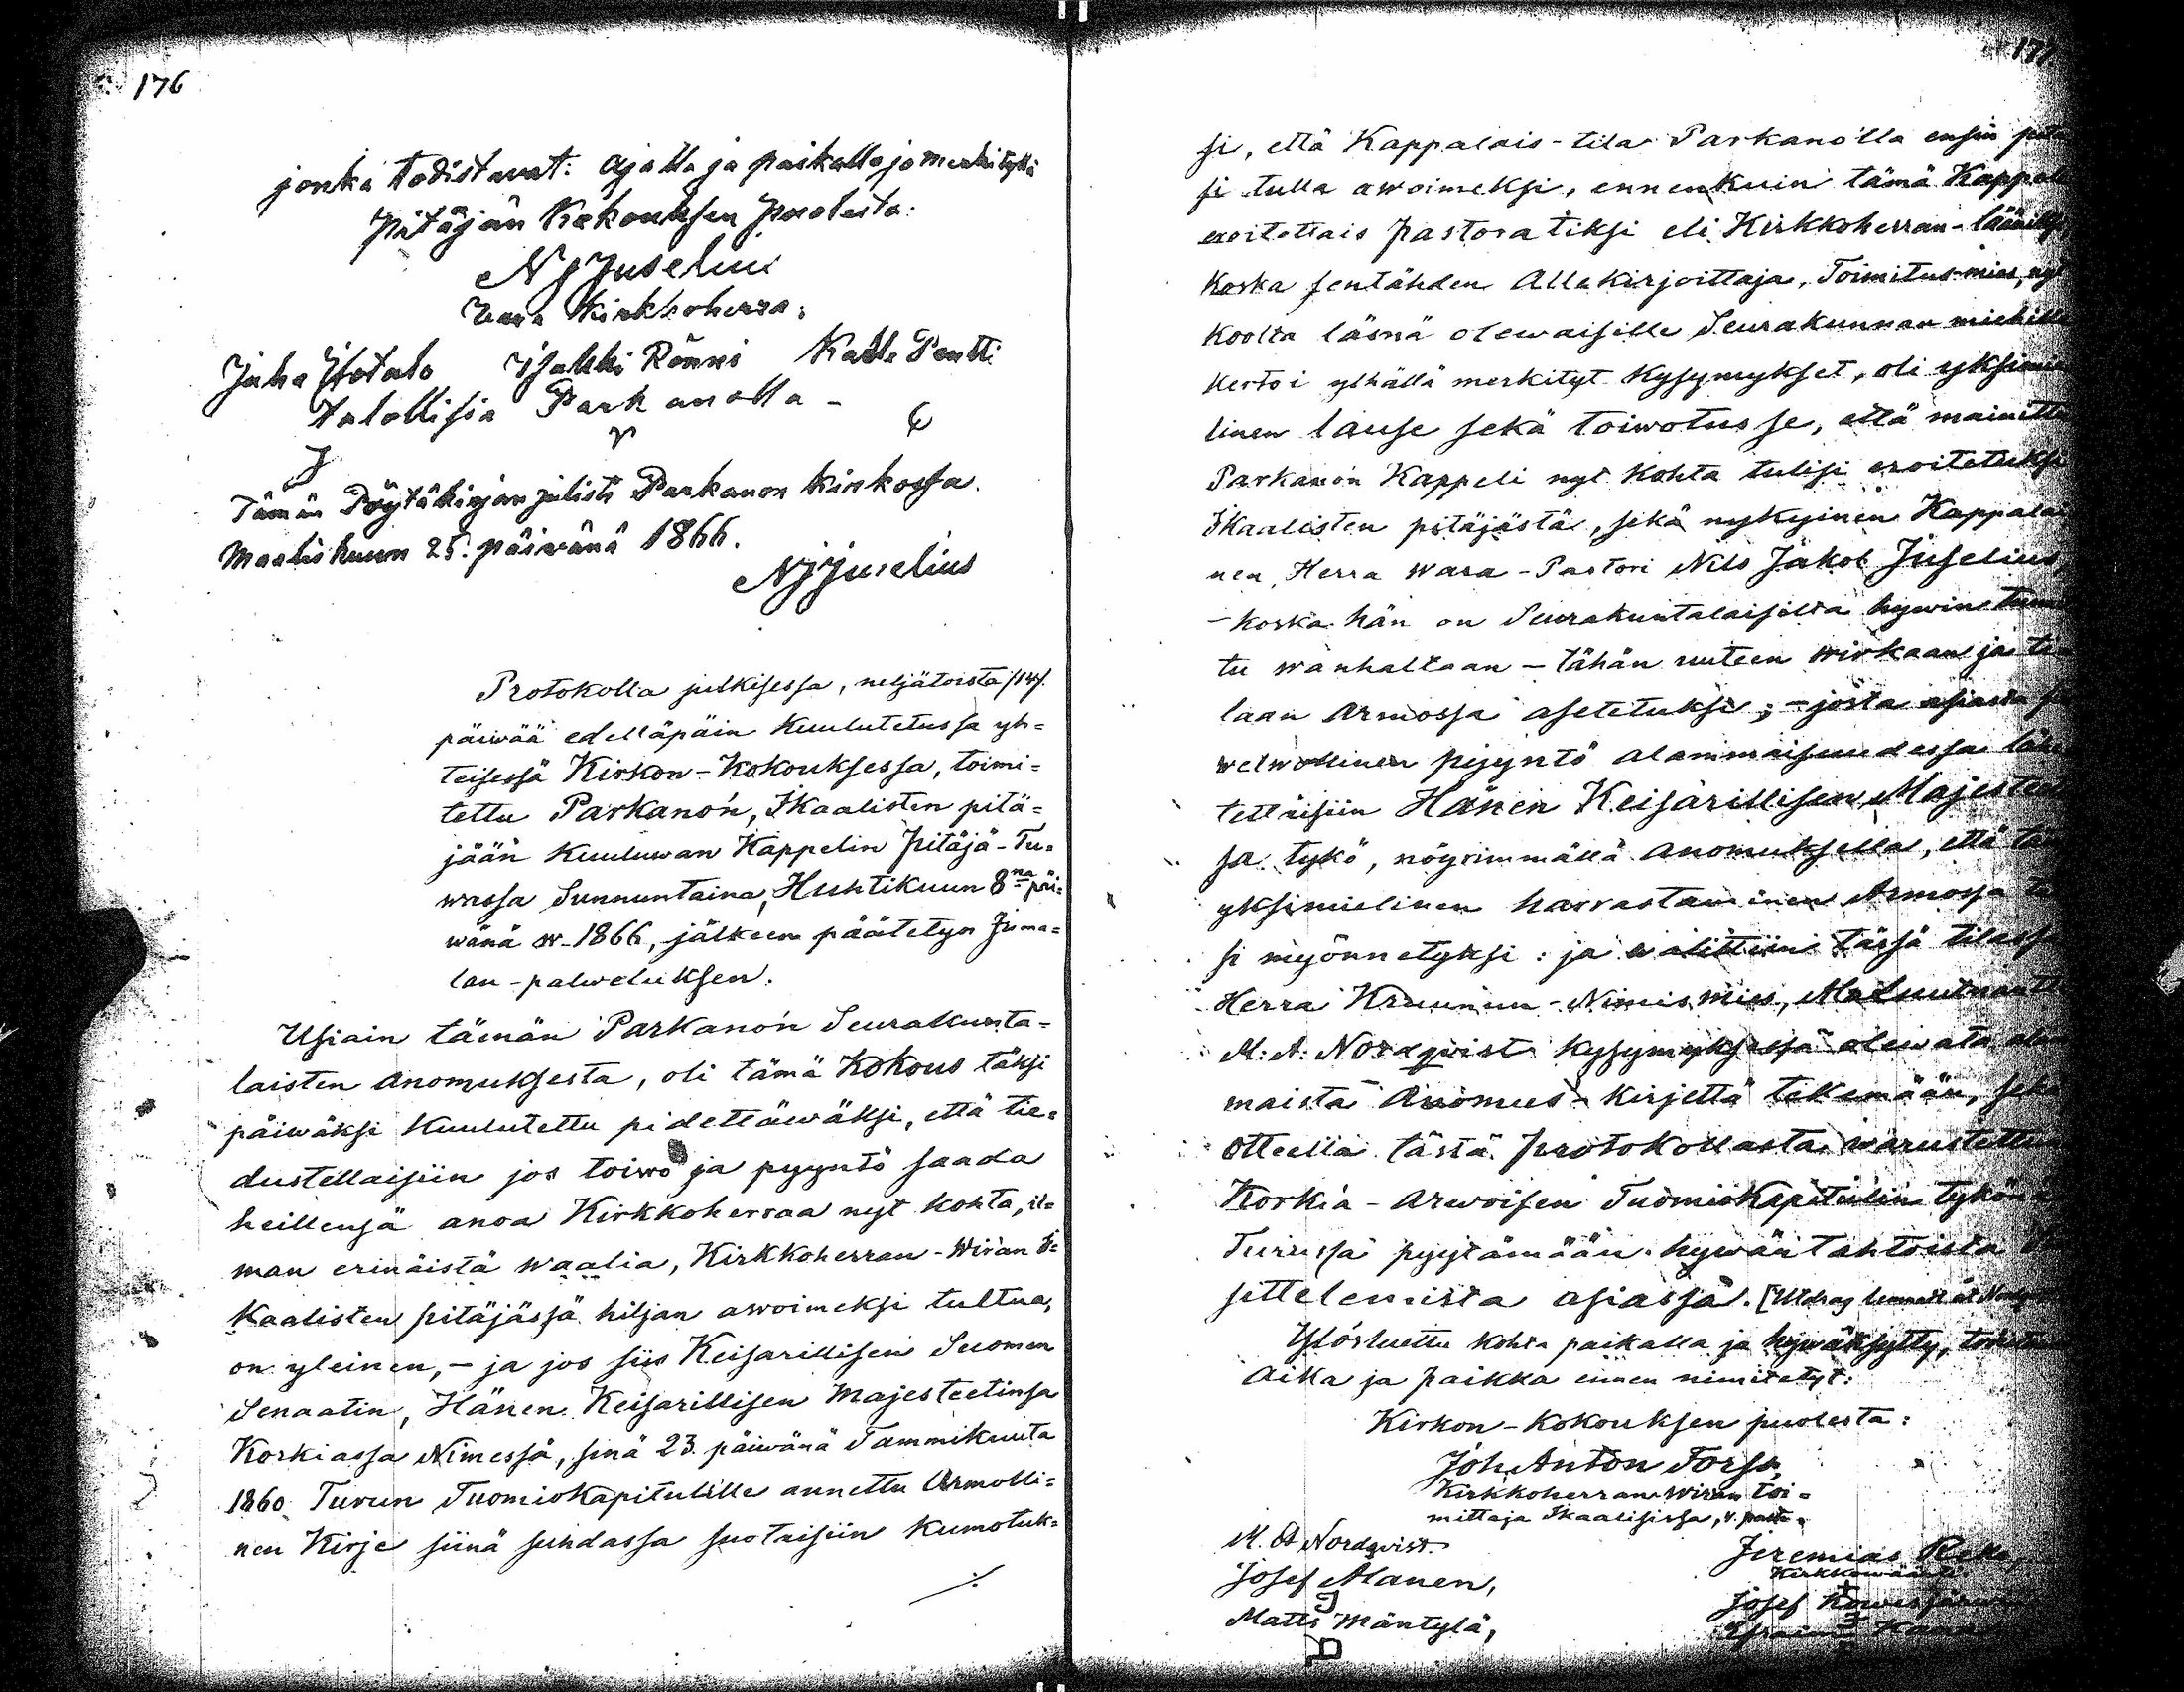 176
jonka todistavat: Ajalla ja paikalla jo merkityllä
Pitäjän Kokouksen puolesta:
NJJuselius
Vara Kirkkoherra.
Juha Yotalo Iisakki Rönni Kalle Pentti
talollisia Parkanolla -
Tämän Pöytäkirjan julisti Parkanon kirkossa.
Maaliskuun 25. päiwänä 1866.
NJJuselius
Protokolla julkisessa, neljätoista /14/.
päiwää edelläpäin Kuulutetussa yh=
teisessä Kirkon-Kokouksessa, toimi=
tettu Parkanon, Ikaalisten pitä=
jään Kuuluwan Kappelin Pitäjä-Tu=
wassa Sunnuntaina, Huhtikuun 8na päi=
wänä w. 1866, jälkeen päätetyn Juma=
lan-palweluksen.
Usiain tämän Parkanon Seurakunta=
laisten anomuksesta, oli tämä Kokous täksi
päiwäksi Kuulutettu pidettäwäksi, että tie=
dustellaisiin jos toiwo ja pyyntö saada
heillensä anoa Kirkkoherraa nyt kohta, il=
man erinäistä waalia, Kirkkoherran-Wiran I=
kaalisten pitäjässä hiljan awoimeksi tultua,
on yleinen, - ja jos siis Keisarillisen Suomen
Senaatin, Hänen Keisarillisen Majesteetinsa
Korkiassa Nimessä, sinä 23. päiwänä Tammikuuta
1860 Turun Tuomiokapitulille annettu Armolli=
nen Kirje siinä suhdassa suotaisiin Kumotuk=
./.
177
si, että Kappalais-tila Parkanolla ensin
si tulla awoimeksi, ennenkuin tämä
eroitettais Pastoratiksi eli Kirkkoherran-
Koska sentähden Allekirjoittaja, Toimitus-mies,
Koolta läsnä olewaisille Seurakunnan
kertoi ylhällä merkityt Kysymykset, oli
linen lause sekä toiwotus se, että
Parkanon Kappeli nyt kohta tulisi eroitetuksi
Ikaalisten pitäjästä, sekä nykyinen
nen, Herra Wara-Pastori Nils Jakob Juselius
- koska hän on Seurakuntalaisilta hywin
tu wanhaltaan - tähän uuteen wirkaan ja
laan Armossa asetetuksi; - josta asiasta
welwollinen pyyntö alammaisuudessa
tettäisiin Hänen Keisarillisen
sa tykö, nöyrimmällä anomuksella, että
yksimielinen harrastaminen Armossa
si myönnetyksi: ja walittiin tässä
Herra Kruunun-Nimismies,
M: A: Nordqvist Kysymyksessä olewata
maista Anomus-kirjettä tekemään,
Otteella tästä protokollasta
Korkia-Arwoisen Tuomiokapitulin
Turussa pyytämään hywäntahtoista
sittelemista asiassa. [Utdrag lemnadt åt
Ylösluettu kohta paikalla ja hywäksytty,
Aika ja paikka ennen nimitetyt:
Kirkon-Kokouksen puolesta:
Joh. Anton
Kirkkoherran-Wiran toi=
mittaja Ikaalisissa,
M. A. Nordqvist. Jeremias
Josef Alanen,
Josef
Matts Mäntylä,